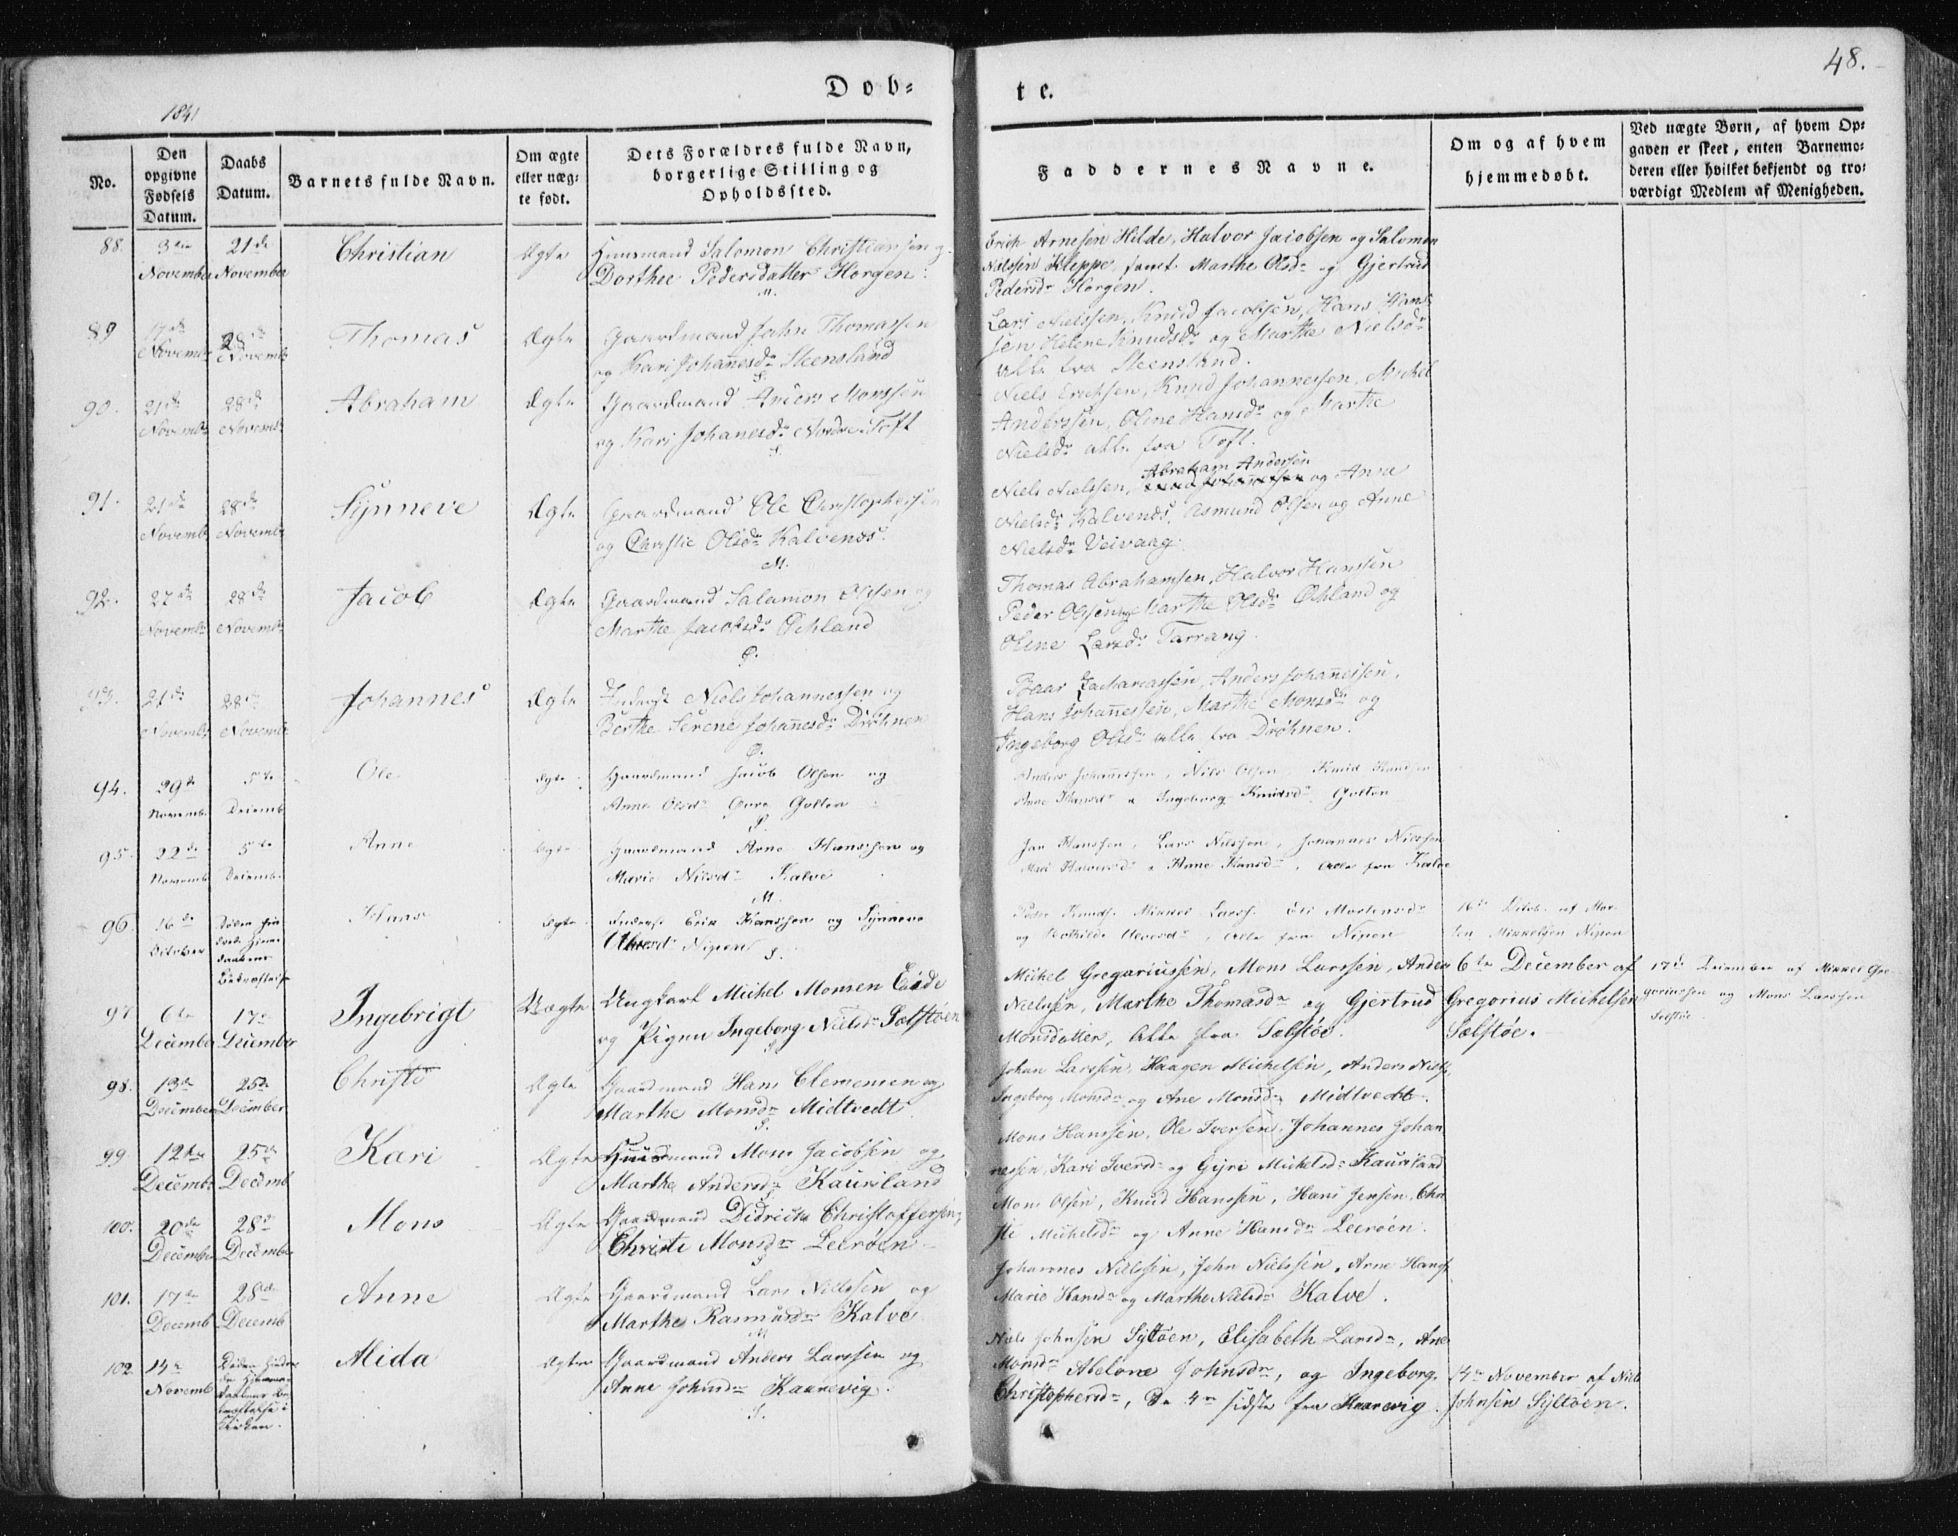 48.
Døb-
te.
1841
No.
Den opgivne Fødsels Datum.
Daabs Datum.
Barnets fulde Navn.
Om ægte eller uægte født.
Dets Forældres fulde Navn, borgerlige Stilling og Opholdssted.
Faddernes Navne.
Om og af hvem hjemmedøbt.
Ved uægte Børn, af hvem Opgaven er skeet, enten Barnemoderen eller hvilket bekjendt og troværdigt Medlem af Menigheden.
88. 3die November 21de November Christian Ægte Huusmand Salomon Christiansen og
Dorthee Pedersdatter Horgen.
M.
Erich Arnesen Hilde, Halvor Jacobsen og Salomon
Nilssen Kleppe, samt Marthe Olsdr og Gjertrud
Pedersdr Horgen.
89 17de Novemb 28de Novemb Thomas Ægte Gaardmand John Thomassen
og Kari Johannesdr Steensland
S.
Lars Nielssen, Knud Jacobsen, Hans Hans-
sen Helene Knudsdr og Marthe Nielsdr
alle fra Steensland.
90. 21de Novembr 28de Novembr Abraham Ægte Gaardmand Anders Monssen
og Kari Johanesdr Nordre Toft
S.
Niels Erichsen, Knud Johannessen, Michel
Anderssen, Oline Hansdr og Marthe
Nielsdr alle fra Toft.
91. 21de Novemb 28de Novembr Synneve Ægte Gaardmand Ole Christophersen
og Christie Olsdr Kalvenæs.
M.
Abraham Andersen
Niels Nielssen, og Anna
Nielsdr Kalvenæs, Asmund Olsen og Anne
Nielsdr Veivaag.
92. 27de Novembr 28de Novembr Jacob Ægte Gaardmand Salamon Olsen og
Marthe Jacobsdr Øchland
Ø.
Thomas Abrahamsen, Halvor Hanssen
Peder Olsen og Marthe Olsdr Øchland og
Oline Larsdr Tarrang.
93. 21de Novembr 28de Novembr Johannes Ægte Inderst Niels Johannessen og
Berthe Serene Johannesdr Drøhnen
Ø.
Baar Zachariassen, Anders Johannessen,
Hans Johannessen, Marthe Monsdr og
Ingeborg Olsdr alle fra Drøhnen.
94. 29de Novemb. 5te Decemb Ole Ægte Gaardmand Jacob Olsen og
Anne Olsdr Øvre Golten
S.
Anders Johannessen, Nils Olsen, Knud Hansen
Anne Hansdr & Ingeborg Knudsdr Golten
95. 22de Novemb 5te Decemb. Anne Ægte Gaardmand Arne Hanssen og
Marie Nilsdr Kalve
M.
Jan Hanssen, Lars Nilssen, Johannes Nilssen
Mari Halvorsdr & Anne Hansdr, Alle fra Kalve
96 16de October Hans Ægte Inderst Erik Hanssen og Synneve
Nipen
S.
Peder Knuds. Mikkel Larss. Eli Mortensdr
og, Alle fra Nipen
16de Octob. af Mor-
ten Mikkelsen Nipen
97 6te December 17de December Ingebrigt Uægte Ungkarl Michel Monsen Eide
og Pigen Ingeborg Nielsdr Sælstøen
S
Michel Gregoriussen, Mons Larssen, Anders
Nielsen, Marthe Thomasdr og Gjertrud
Monsdatter, Alle fra Sælstøe.
6te December af
Gregorius Michelsen
Sælstøe.
17de December af Mikkel Gre-
goriussen og Mons Larssen
Selstøe
98. 13de December 25de December Christi Ægte Gaardmand Hans Clemensen og
Marthe Monsdr Midtvedt.
S.
Johan Larssen, Haagen Michelsen, Anders Niels.
Ingeborg Monsdr og Ane Monsdr Midtvedt.
99. 12te Decembr 25de Decemb Kari Ægte Huusmand Mons Jacobsen og
Marthe Andersdr Kausland
Mons Hanssen, Ole Iversen, Johannes Johan-
nessen, Kari Iversdr og Gyri Michelsdr Kausland
100. 20de December 28de December Mons Ægte Gaardmand Didrich Christoffersen,
Christi Monsdr Leerøen
S
Mons Olsen, Knud Hanssen, Hans Jensen, Chri-
sti Michelsdr og Anne Hansdr Leerøen.
101. 17de Decemb 28de Decemb Anne Ægte Gaardmand Lars Nielssen og
Marthe Rasmusdr Kalve
M
Johannes Nielssen, John Nielssen, Arne Hanss.
Marie Hansdr og Marthe Nielsdr Kalve.
102. 14de Novemb Alida Ægte Gaardmand Anders Larssen og
Anne Johnsdr Kaarevig.
S.
Niels Johnsen Syltøen, Elisabeth Larsdr, Ane
Monsdr Abelone Johnsdr, og Ingeborg
Christophersdr, De 4re sidste fra Kaarevig.
14de November af Niels
Johnsen Syltøen.